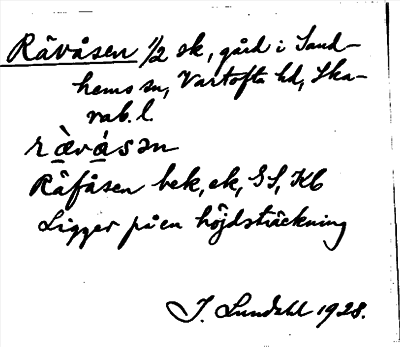 Rävåsen 1/2 sk, gård i Sand-
hems sn, Vartofta hd, Ska-
rab. l.
ràvá̱sən
Räfåsen bek, ek, GS, Kb
Ligger på en höjdsträckning
I. Lundahl 1928.